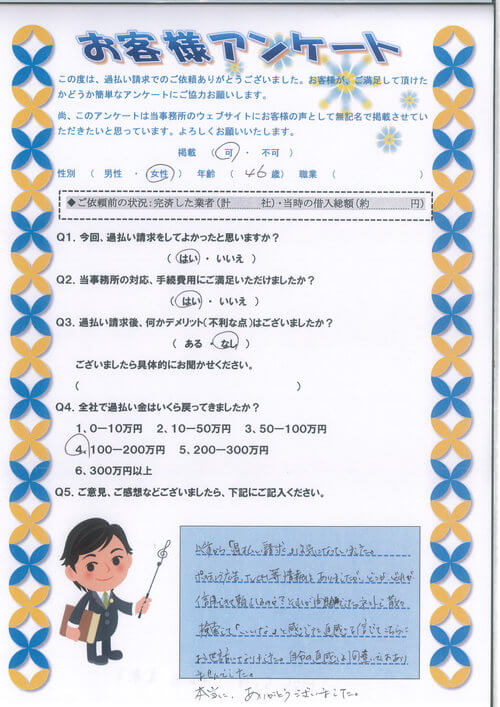 お客様アンケート
この度は、過払い請求でのご依頼ありがとうございました。お客様が、ご満足して頂けた
かどうか簡単なアンケートにご協力お願いします。
尚、このアンケートは当事務所のウェブサイトにお客様の声として無記名で掲載させてい
ただきたいと思っています。よろしくお願いいたします。
掲載 （ 可 ・ 不可 ）
性別 （ 男性 ・ 女性 ） 年齢 （ 46 歳） 職業 （ ）
◆ご依頼前の状況：完済した業者（計 社）・当時の借入総額（約 円）
Q1. 今回、過払い請求をしてよかったと思いますか？
（ はい ・ いいえ ）
Q2. 当事務所の対応、手続費用にご満足いただけましたか？
（ はい ・ いいえ ）
Q3. 過払い請求後、何かデメリット（不利な点）はございましたか？
（ ある ・ なし ）
ございましたら具体的にお聞かせください。
（ ）
Q4. 全社で過払い金はいくら戻ってきましたか？
1、0－10万円 2、10－50万円 3、50－100万円
4、100－200万円 5、200－300万円
6、300万円以上
Q5. ご意見、ご感想などございましたら、下記にご記入ください。
以前から「過払い請求」は気になっていました。
検索して「ここだな」と感じた直感を信じてこちらに
お世話になりました。自分の直感による間違いはあり
ませんでした。
本当に、ありがとうございました。